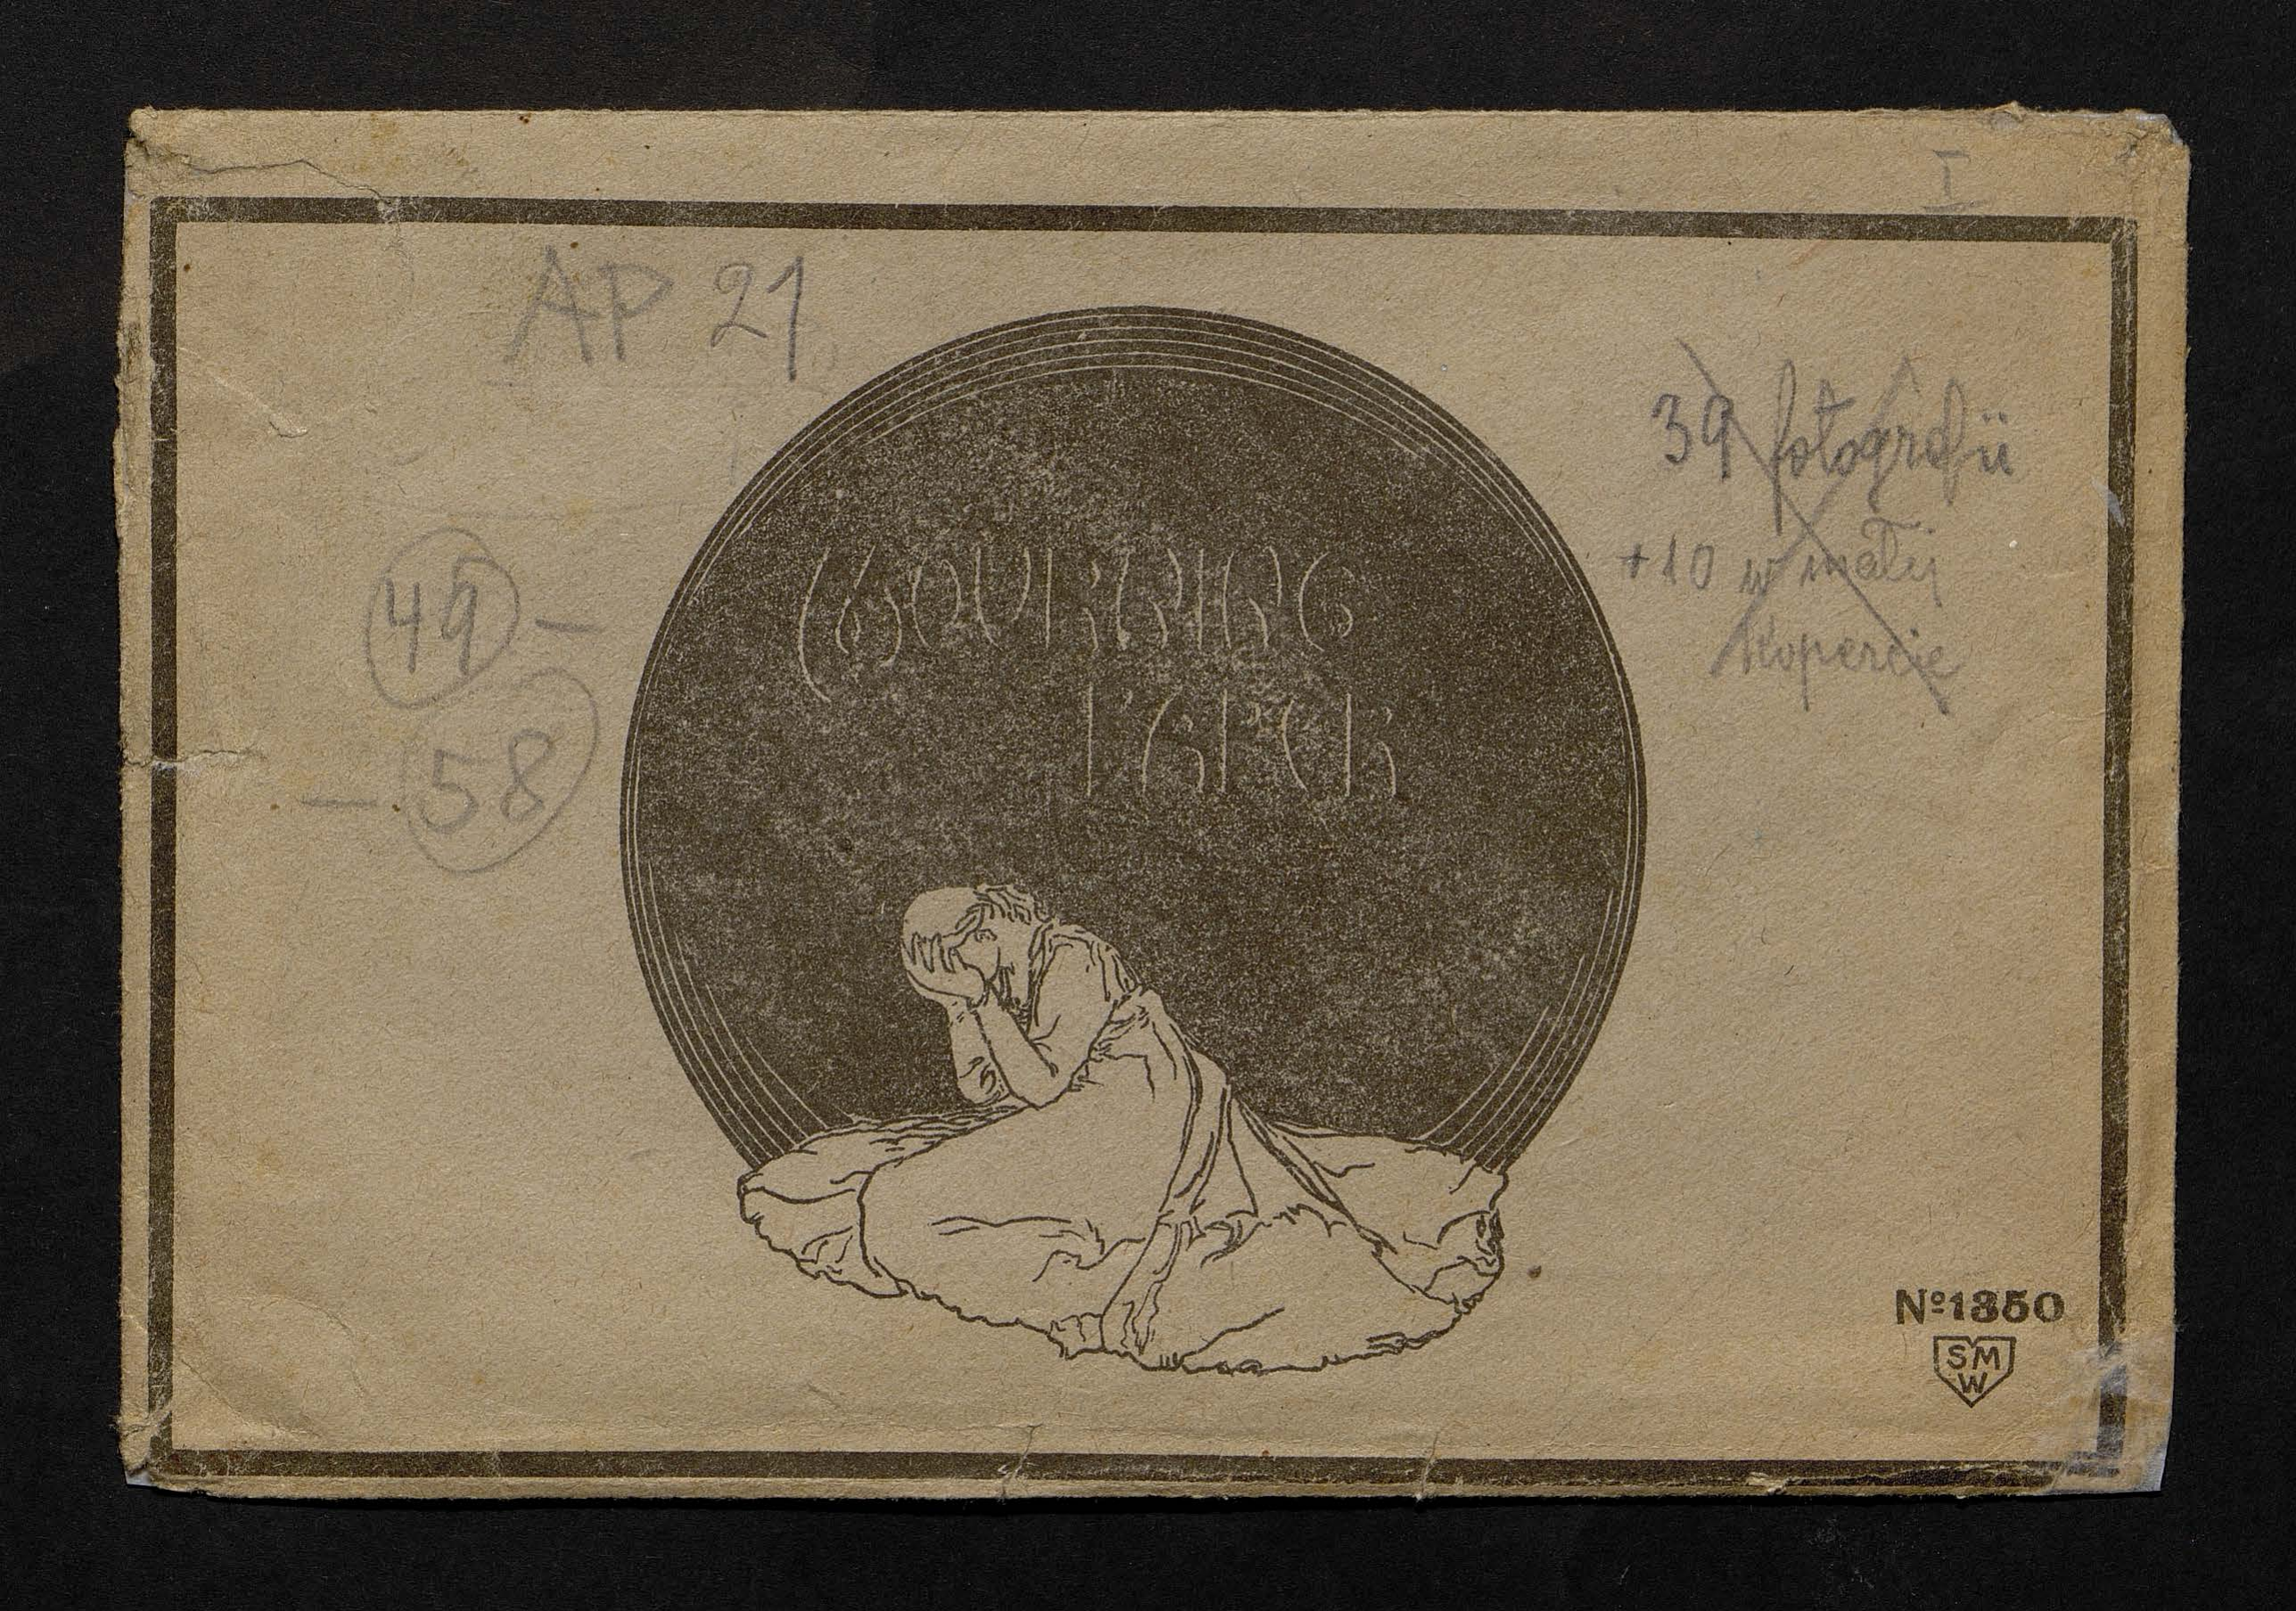 I
AP 21
39 fotografii
+10 w małej
kopercie
49 –
– 58
MOURNING
PAPER
Nº 1350
SM
W